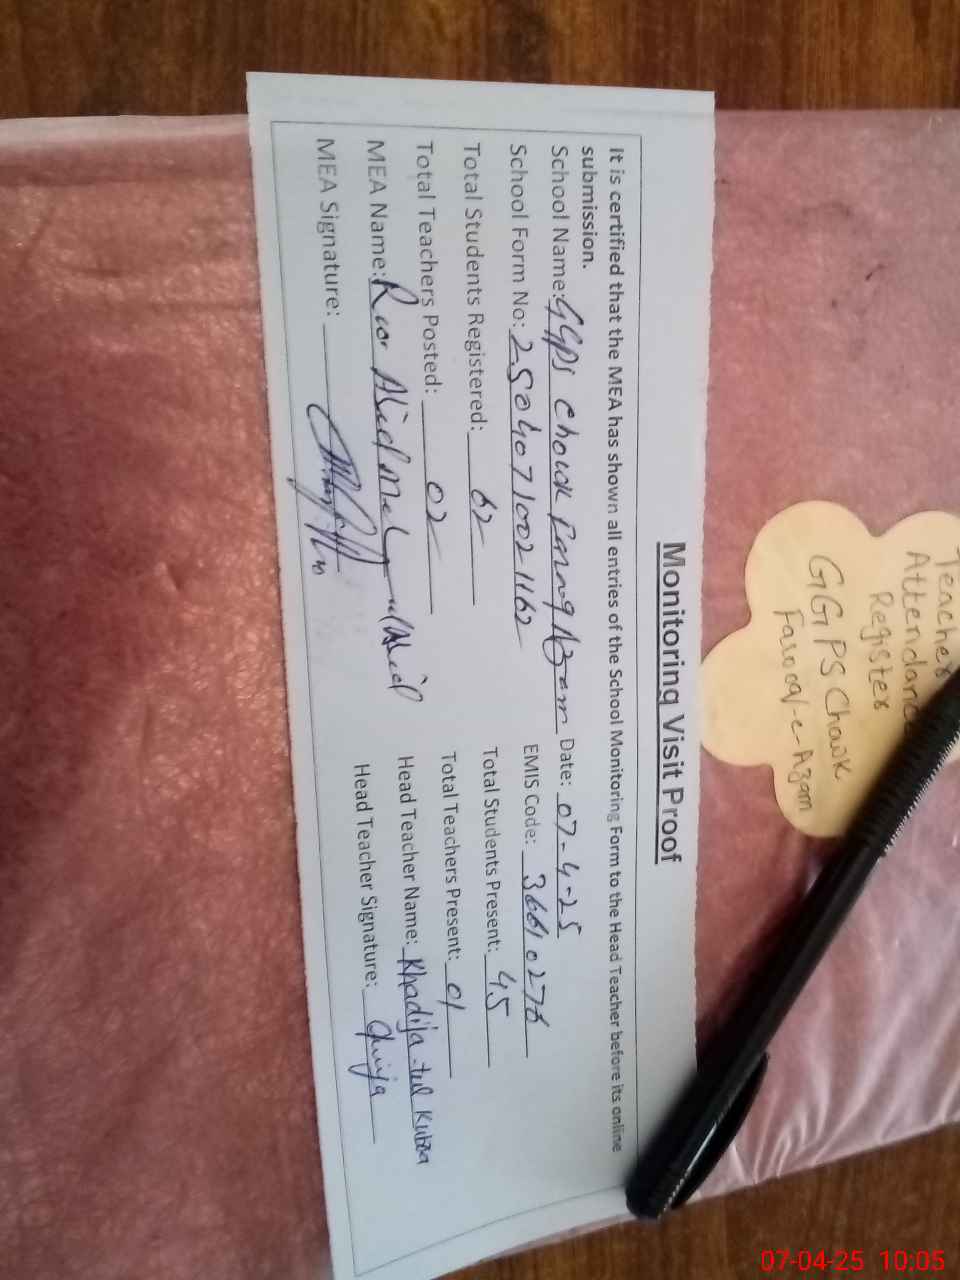 Teacher
Attendance
Register
GGPS Chowk
Farooq-e-Azam
Monitoring Visit Proof
It is certified that the MEA has shown all entries of the School Monitoring Form to the Head Teacher before its online
submission.
School Name: GGPS Chowk Farooq Azam Date: 07-4-25
School Form No: 25040710021162 EMIS Code: 36610276
Total Students Registered: 62 Total Students Present: 45
Total Teachers Posted: 02 Total Teachers Present: 01
MEA Name: Head Teacher Name: Khadija-tul Kubra
MEA Signature: Head Teacher Signature:
07-04-25 10:05